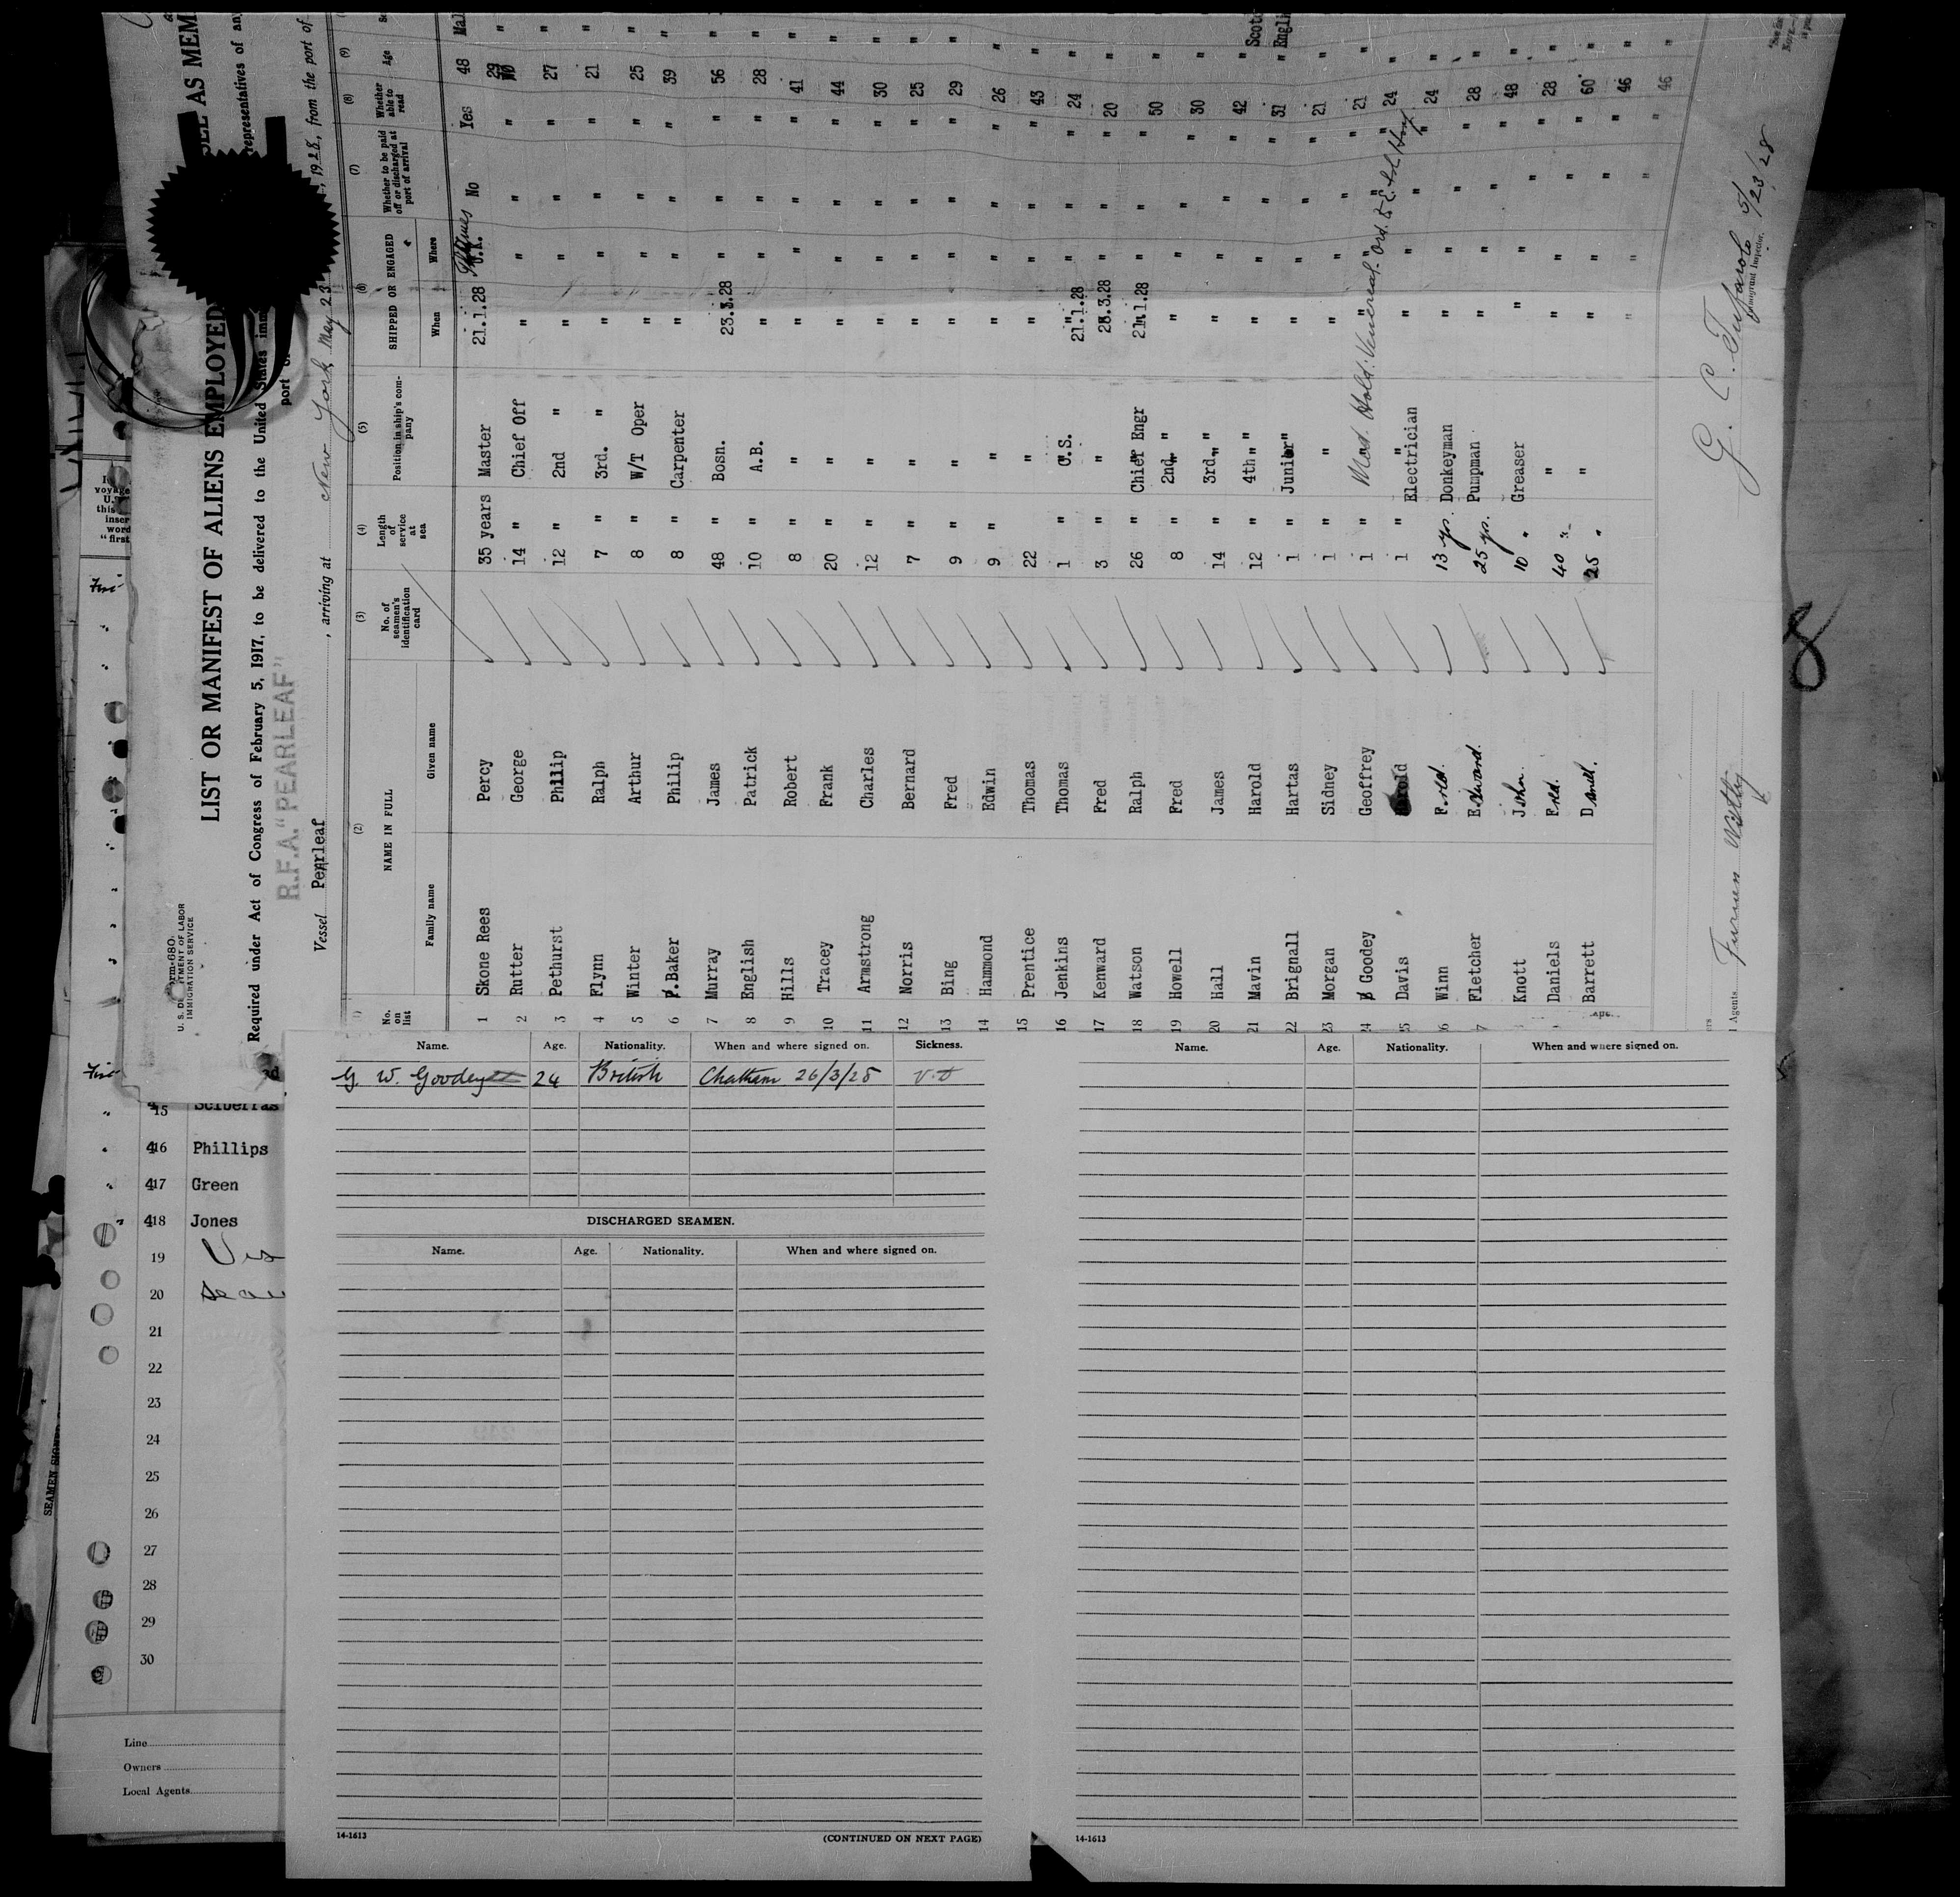 Form 680
U. S. DEPARTMENT OF LABOR
IMMIGRATION SERVICE
LIST OR MANIFEST OF ALIENS EMPLOYED
Required under Act of Congress of February 5, 1917, to be delivered to the United States
representatives of any
port
R.F.A. "PEARLEAF"
Vessel Pearleaf , arriving at New York May 23 , 1928, from the port of
(2) (3) (4) (5) (6) (7) (8) (9)
No. on list NAME IN FULL No. of seamen's identification card Length of service at sea Position in ship's company SHIPPED OR ENGAGED Whether to be paid off or discharged at port of arrival Whether able to read Age
Family name Given name When Where
1 Skone Rees Percy 35 years Master 21.1.28 No Yes 48
2 Rutter George 14 " Chief Off " " " " 29
3 Pethurst Phillip 12 " 2nd " " " " " 27 "
4 Flynn Ralph 7 " 3rd. " " " " " 21 "
5 Winter Arthur 8 " W/T Oper " " " " 25 "
6 P. Baker Philip 8 " Carpenter " " " " 39 "
7 Murray James 48 " Bosn. 23.3.28 " " " 56 "
8 English Patrick 10 " A.B. " " " " 28 "
9 Hills Robert 8 " " " " " " 41 "
10 Tracey Frank 20 " " " " " " 44 "
11 Armstrong Charles 12 " " " " " " 30 "
12 Norris Bernard 7 " " " " " " 25 "
13 Bing Fred 9 " " " " " " 29 "
14 Hammond Edwin 9 " " " " " " 26 "
15 Prentice Thomas 22 " " " " " 43 "
16 Jenkins Thomas 1 " O.S. 21.1.28 " " " 24 "
17 Kenward Fred 3 " " 23.3.28 " " " 20 "
18 Watson Ralph 26 " Chief Engr 21.1.28 " " " 50 "
19 Howell Fred 8 " 2nd " " " " " 30 "
20 Hall James 14 " 3rd. " " " " " 42 " Scot
21 Mavin Harold 12 " 4th " " " " " 31 " Engli
22 Brignall Hartas 1 " Junior " " " " " 21 "
23 Morgan Sidney 1 " " " " " " 21 "
24 Goodey Geoffrey 1 " " " " " 24 "
Med. Hold. Venereal.
25 Davis Harold 1 " " " " " " 24 "
Electrician
26 Winn Fred. 13 yrs. Donkeyman " " " " 28 "
Fletcher Edward. 25 yrs. Pumpman " " " " 48 "
Knott John. 10 " Greaser " " " " 28 "
Daniels Fred. 40 " " " " " " 60 "
Barrett Daniel. 25 " " " " " " 46 "
46 "
Local Agents Furness Withy
G. C. Tufarolo 5/23/28
Immigrant Inspector.
8
Name. Age. Nationality. When and where signed on. Sickness.
G. W. Goodey 24 British Chatham 26/3/28 V.D
DISCHARGED SEAMEN.
Name. Age. Nationality. When and where signed on.
14-1613 (CONTINUED ON NEXT PAGE)
Name. Age. Nationality. When and where signed on.
14-1613
15 Sciberras
416 Phillips
417 Green
418 Jones
19
20
21
22
23
24
25
26
27
28
29
30
Line
Owners
Local Agents